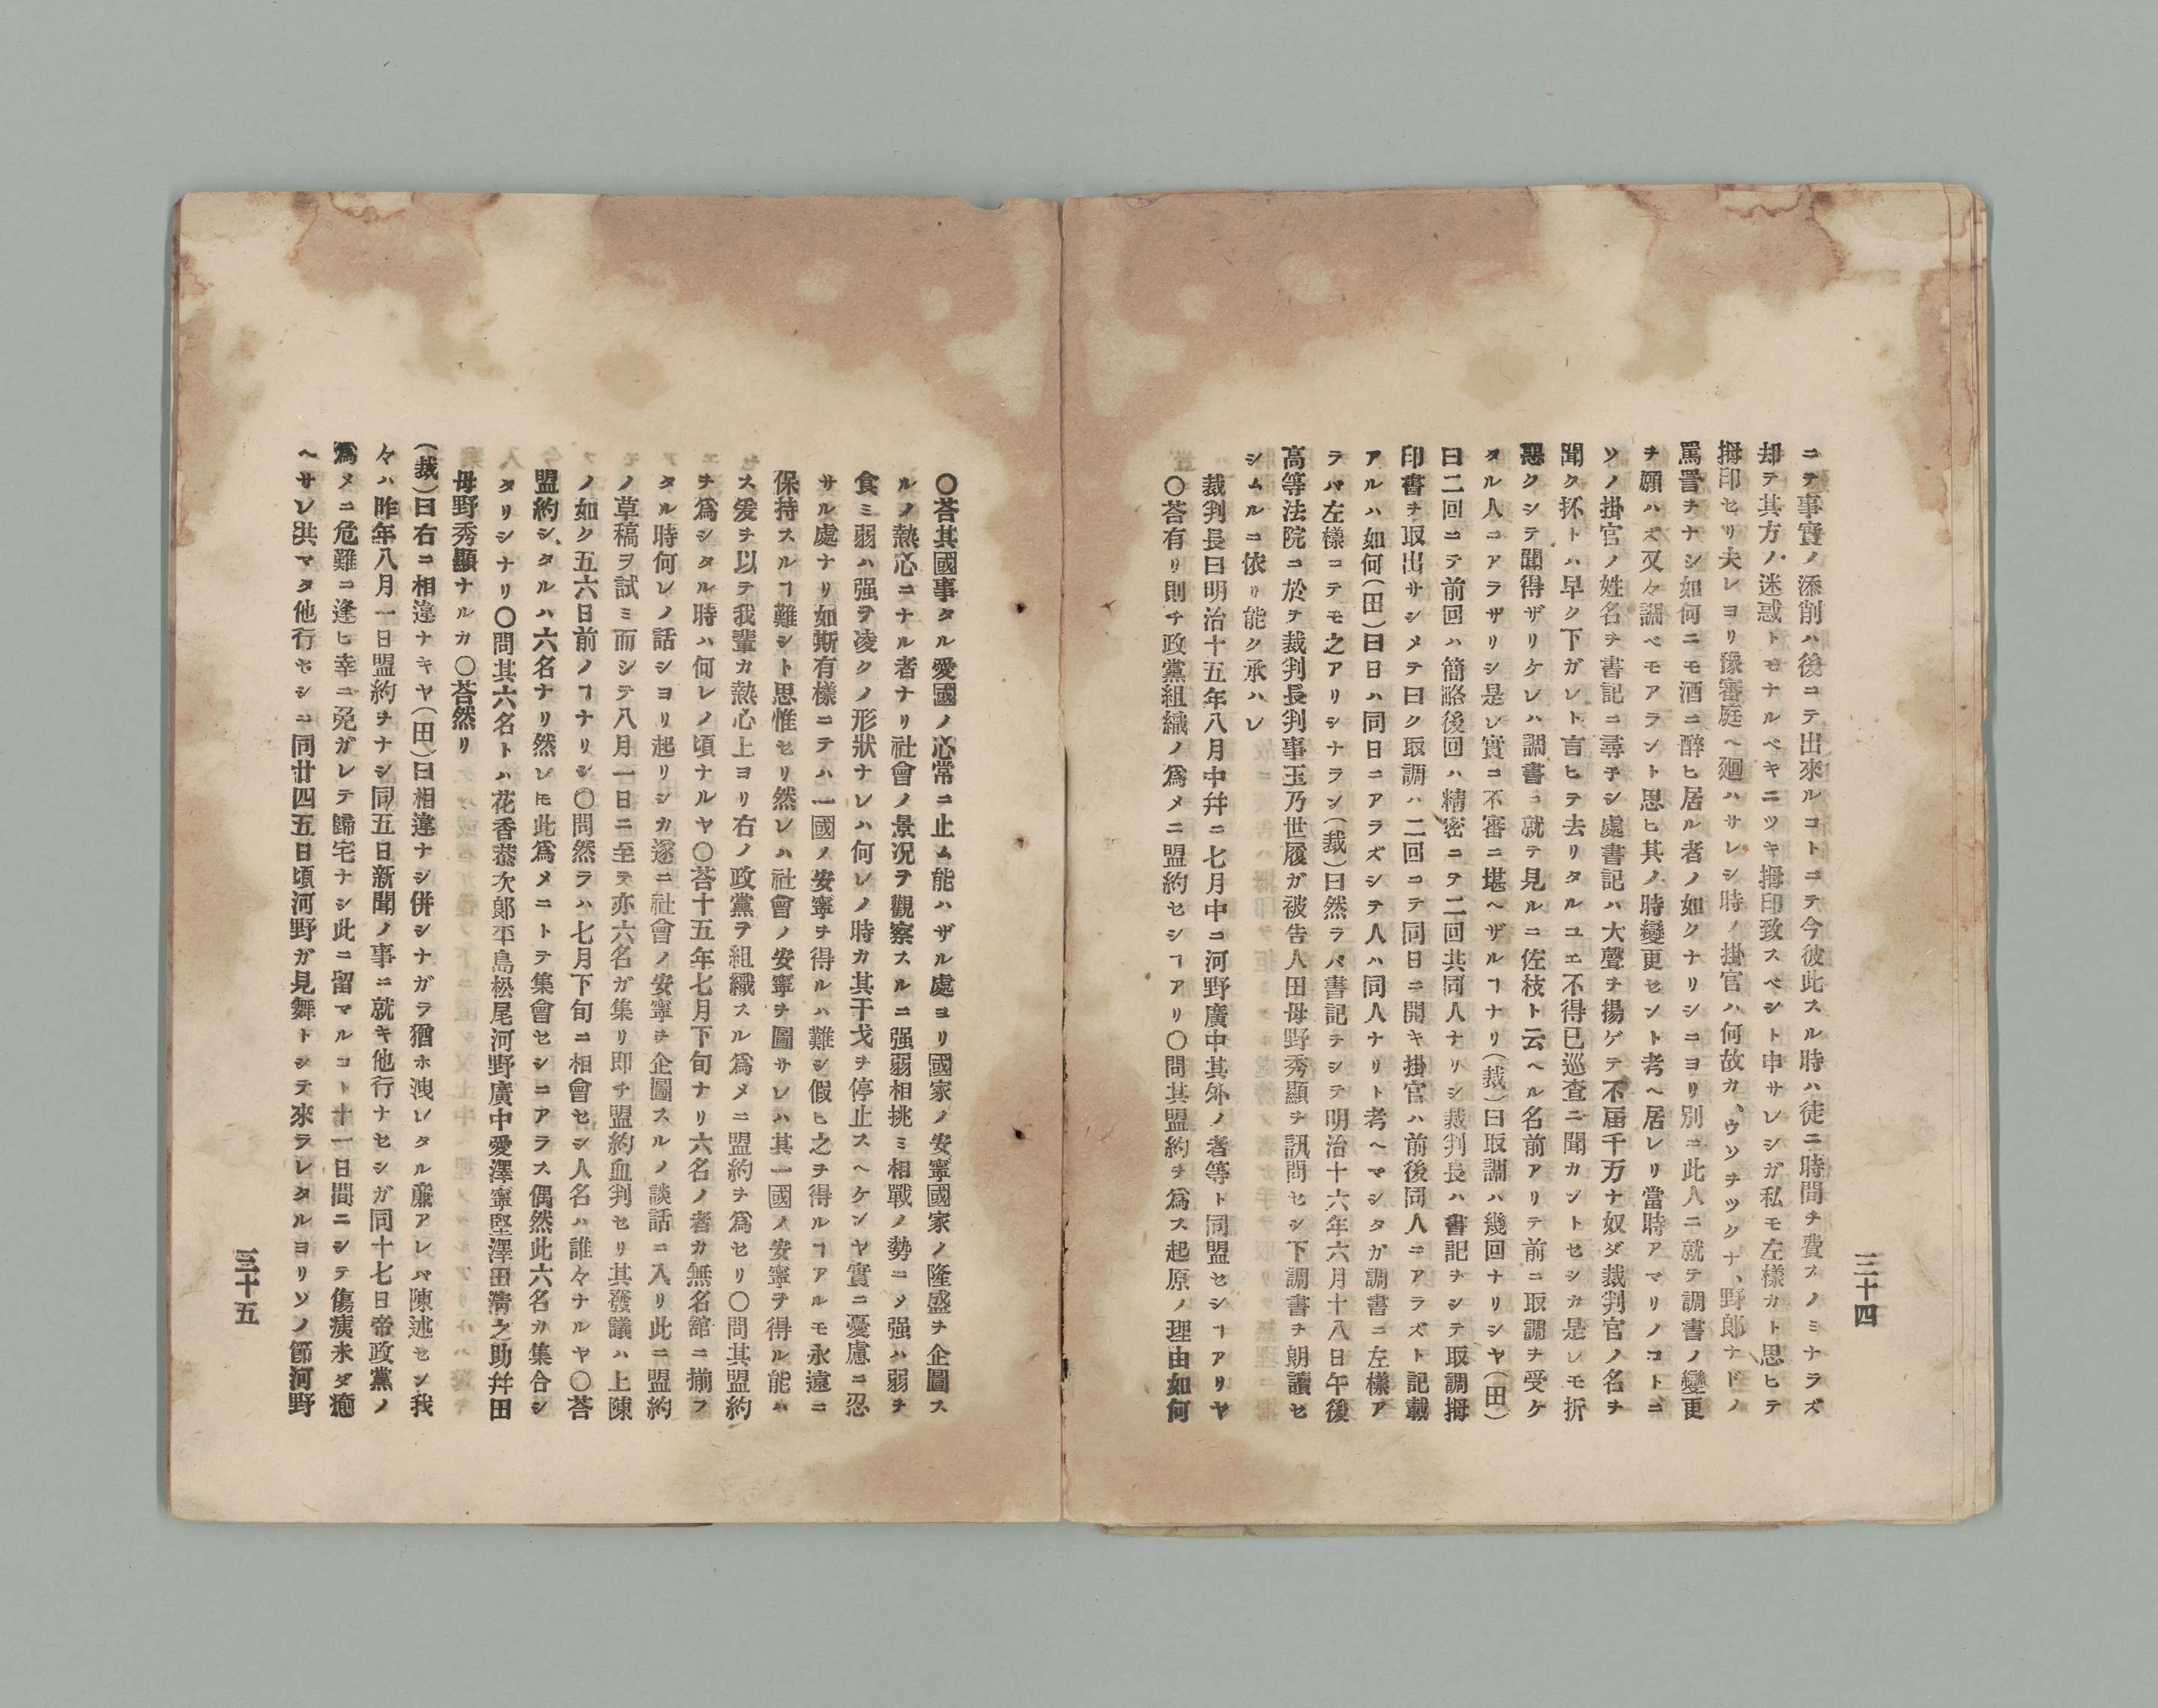 三十四
ニテ事實ノ添削ハ後コテ出來ルコトニテ今彼此スル時ハ徒ニ時間チ費スノミナラズ
却テ其方ノ迷惑トモナルベキニツキ拇印致スベシト申サレシガ私モ左樣カト思ヒテ
拇印セリ夫レヨリ豫審庭ヘ廻ハサレシ時ノ掛官ハ何故カ、ウソチツクナ、野郎ナドノ
罵詈チナシ如何ニモ酒ニ醉ヒ居ル者ノ如クナリシニヨリ別ニ此人ニ就テ調書ノ變更
チ願ハズ又々調ベモアラント思ヒ其ノ時變更セント考ヘ居レリ當時アマリノコトニ
ソノ掛官ノ姓名チ書記ニ尋子シ處書記ハ大聲チ揚ゲテ不屆千万ナ奴ダ裁判官ノ名チ
聞ク抔トハ早ク下ガレト言ヒテ去リタルユエ不得已巡査ニ聞カントセシカ是レモ折
惡クシテ聞得ザリケレハ調書ニ就テ見ルニ佐枝ト云ヘル名前アリテ前ニ取調チ受ケ
タル人ニアラザリシ是レ實コ不審ニ堪ヘザルヿナリ(裁)曰取調ハ幾回ナリシヤ(田)
曰二回ニテ前回ハ簡略後回ハ精密ニテ二回共同人ナリシ裁判長ハ書記チシテ取調拇
印書チ取出サシメテ曰ク取調ハ二回コテ同日ニ開キ掛官ハ前後同人ニアラズト記載
アルハ如何(田)曰日ハ同日ニアラズシテ人ハ同人ナリト考ヘマシタガ調書ニ左樣ア
ラバ左樣コテモ之アリシナラン(裁)曰然ラバ書記チシテ明治十六年六月十八日午後
高等法院コ於テ裁判長判事玉乃世履ガ被告人田母野秀顯チ訊問セシ下調書チ朗讀セ
シムルコ依リ能ク承ハレ
裁判長曰明治十五年八月中幷ニ七月中コ河野廣中其外ノ者等ト同盟セシヿアリヤ
〇荅有リ則チ政黨組織ノ爲メニ盟約セシヿアリ〇問其盟約チ爲ス起原ノ理由如何
〇荅其國事タル愛國ノ心常コ止ム能ハザル處ヨリ國家ノ安寧國家ノ隆盛チ企圖ス
ルノ熱心コナル者ナリ社會ノ景況ヲ觀察スルニ强弱相挑ミ相戰ノ勢ニメ强ハ弱チ
食ミ弱ハ强ヲ凌クノ形狀ナレハ何レノ時カ其干戈チ停止スヘケンヤ實ニ憂慮ニ忍
サル處ナリ如斯有樣ニテハ一國ノ安寧チ得ルハ難シ假ヒ之チ得ルヿアルモ永遠ニ
保持スルヿ難シト思惟セリ然レハ社會ノ安寧チ圖サレハ其一國ノ安寧ヲ得ル能ハ
ス爰チ以テ我輩カ熱心上ヨリ右ノ政黨ヲ組織スル爲メニ盟約チ爲セリ〇問其盟約
チ爲シタル時ハ何レノ頃ナルヤ〇荅十五年七月下旬ナリ六名ノ者カ無名館ニ揃フ
タル時何レノ話シヨリ起リシカ遂ニ社會ノ安寧チ企圖スルノ談話ニ入リ此ニ盟約
ノ草稿ヲ試ミ而シテ八月一日ニ至テ亦六名ガ集リ即チ盟約血判セリ其發議ハ上陳
ノ如ク五六日前ノヿナリシ〇問然ラハ七月下旬コ相會セシ人名ハ誰々ナルヤ〇荅
盟約シタルハ六名ナリ然レ𪜈此爲メニトテ集會セシニアラス偶然此六名カ集合シ
タリシナリ〇問其六名トハ花香恭次郞平島松尾河野廣中愛澤寧堅澤田淸之助幷田
母野秀顯ナルカ〇荅然リ
(裁)曰右コ相違ナキヤ(田)曰相違ナシ併シナガラ猶ホ洩レタル廉アレバ陳述セン我
々ハ昨年八月一日盟約チナシ同五日新聞ノ事ニ就キ他行ナセシガ同十七日帝政黨ノ
爲メニ危難コ逢ヒ幸ニ免ガレテ歸宅ナシ此ニ留マルコト十一日間ニシテ傷痍未タ癒
ヘサレ共マタ他行セシニ同廿四五日頃河野ガ見舞トシテ來ラレタルヨリソノ節河野
三十五